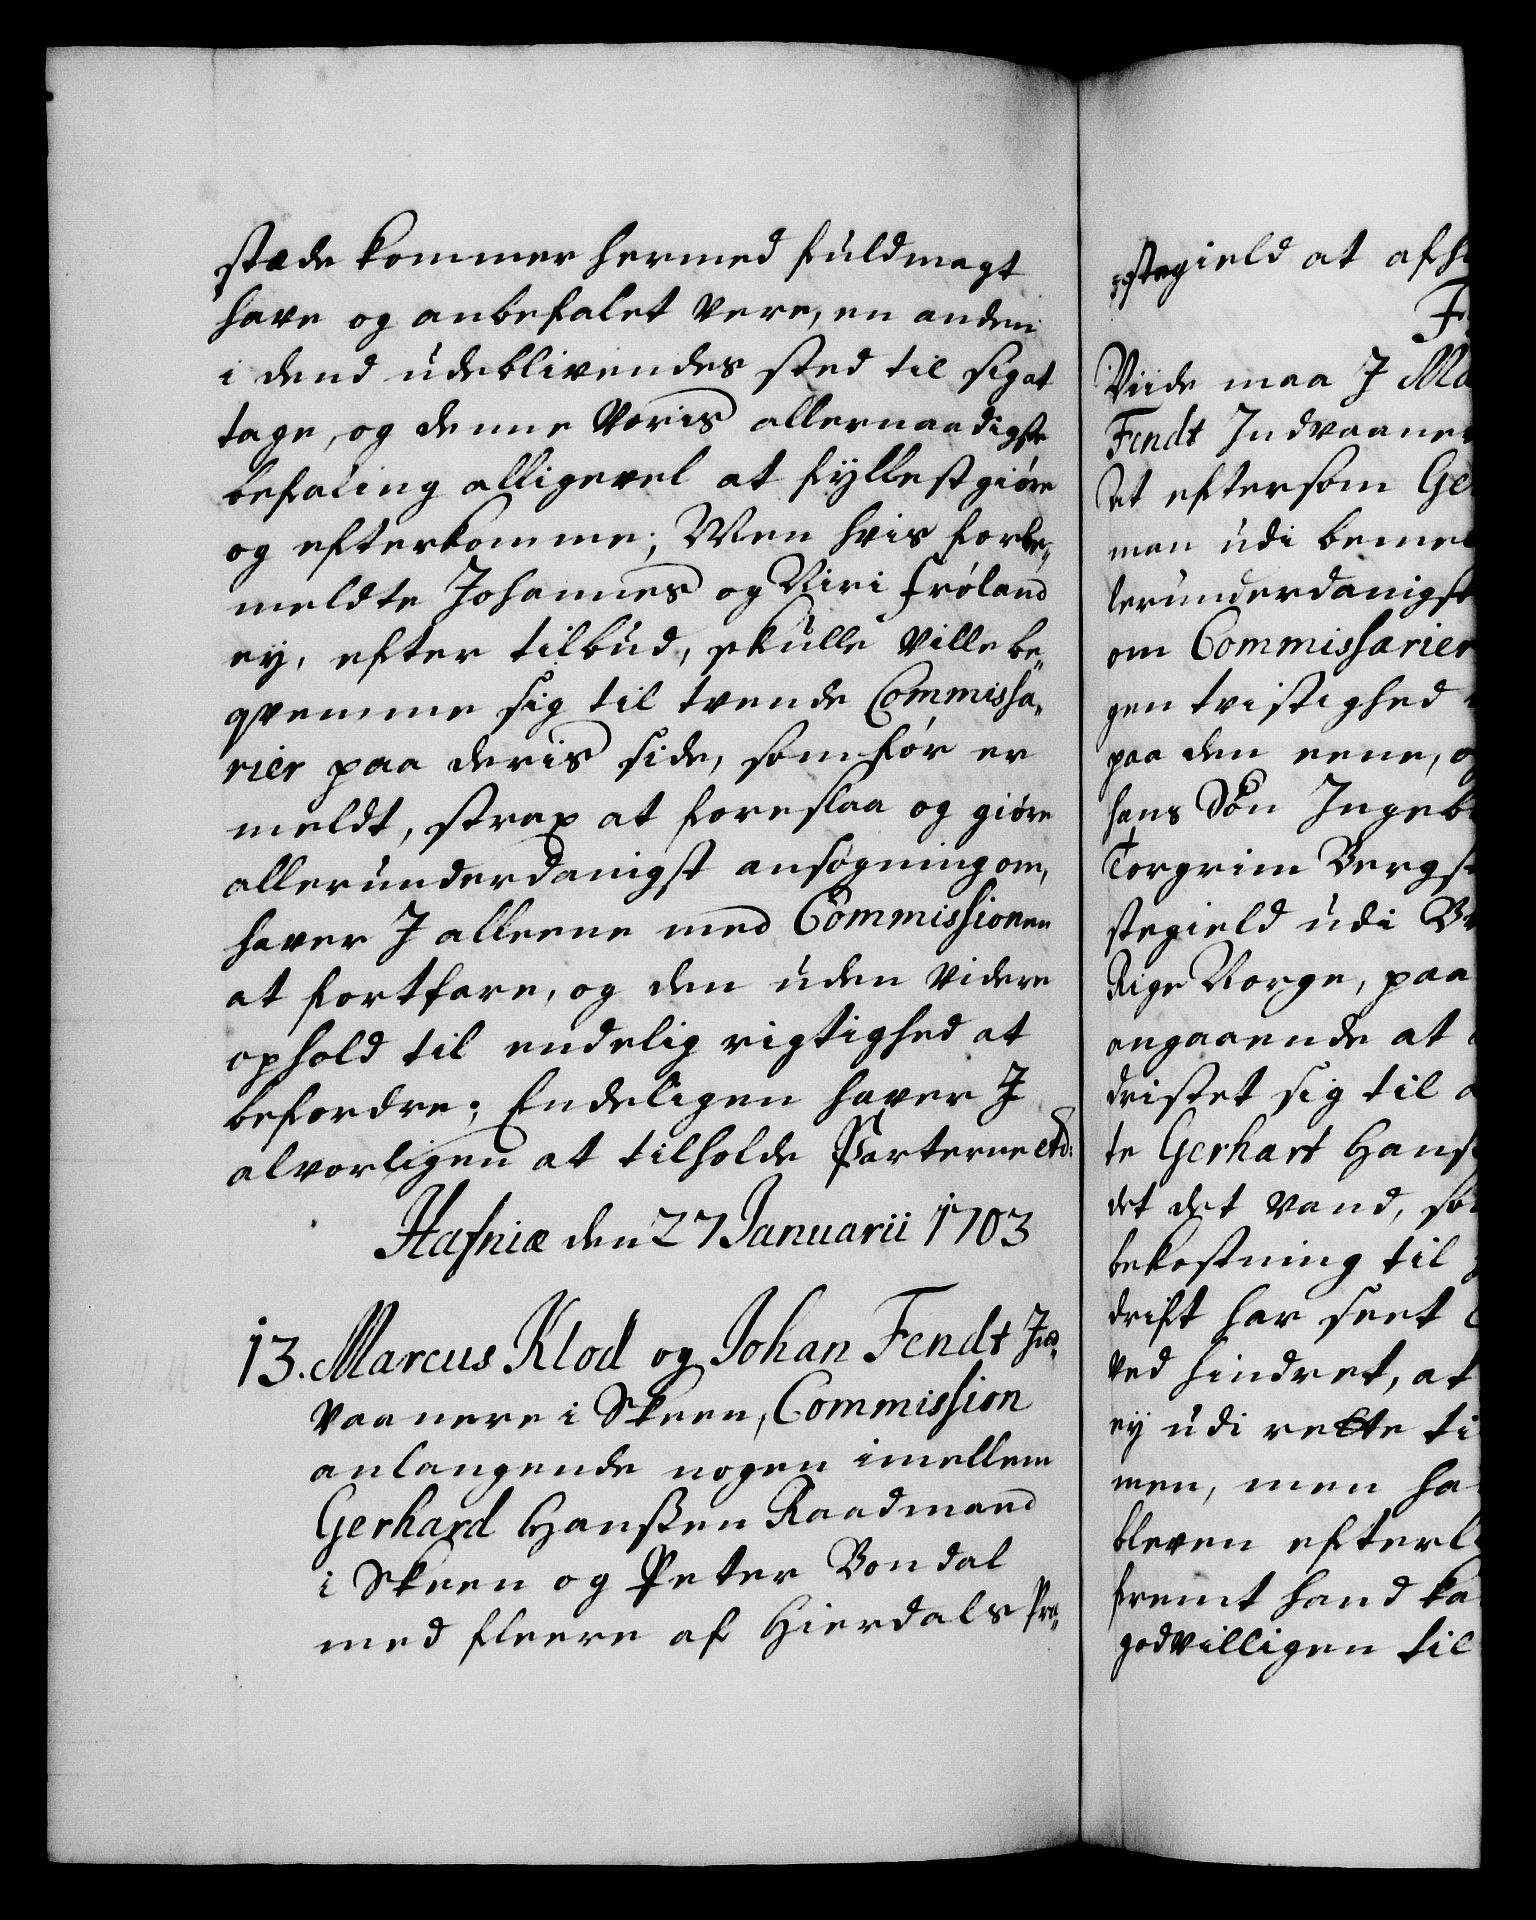 stæde kommer hermed fuldmagt
have og anbefalet være, en anden
i dend udeblivendes sted til sig at
tage, og denne Voris allernaadigste
befaling alligevel at fyllestgiøre
og efterkomme; Men hvis forbe„
meldte Johannes og Siri Frøland
ey, efter tilbud, skulle ville be„
qvemme sig til tvende Commissa„
rier paa deris side, som før er
meldt, strax at foreslaa og giøre
allerunderdanigst ansøgning om,
haver J alleene med Commissionen
at fortfare, og den uden videre
ophold til endelig rigtighed at
befordre; Endeligen haver J
alvorligen at tilholde Parterne etc:
Hafniæ den 27 Januarii 1703
13. Marcus Klod og Johan Fendt Ind„
vaanere i Skeen, Commission
anlangende nogen imellem
Gerhard Hanßen Raadmand
i Skeen og Peter Bondal
med fleere af Hierdals Præ„
stegield at afh
F
Viide maa J Ma
Fendt Indvaaner
At eftersom Ge
man udi bemel
lerunderdanigst
om Commissarier
gen tvistighed
paa den eene, o
hans Søn Ingeb
Torgrim Bergst
stegield udi Br
Rige Norge, paa
angaaende at
dristet sig til a
te Gerhart Hans
det det vand, so
bekostning til
drift har seet
ved hindret, at
ey udi rette ti
men, men ha
bleven efterl
fremt hand ka
godvilligen til